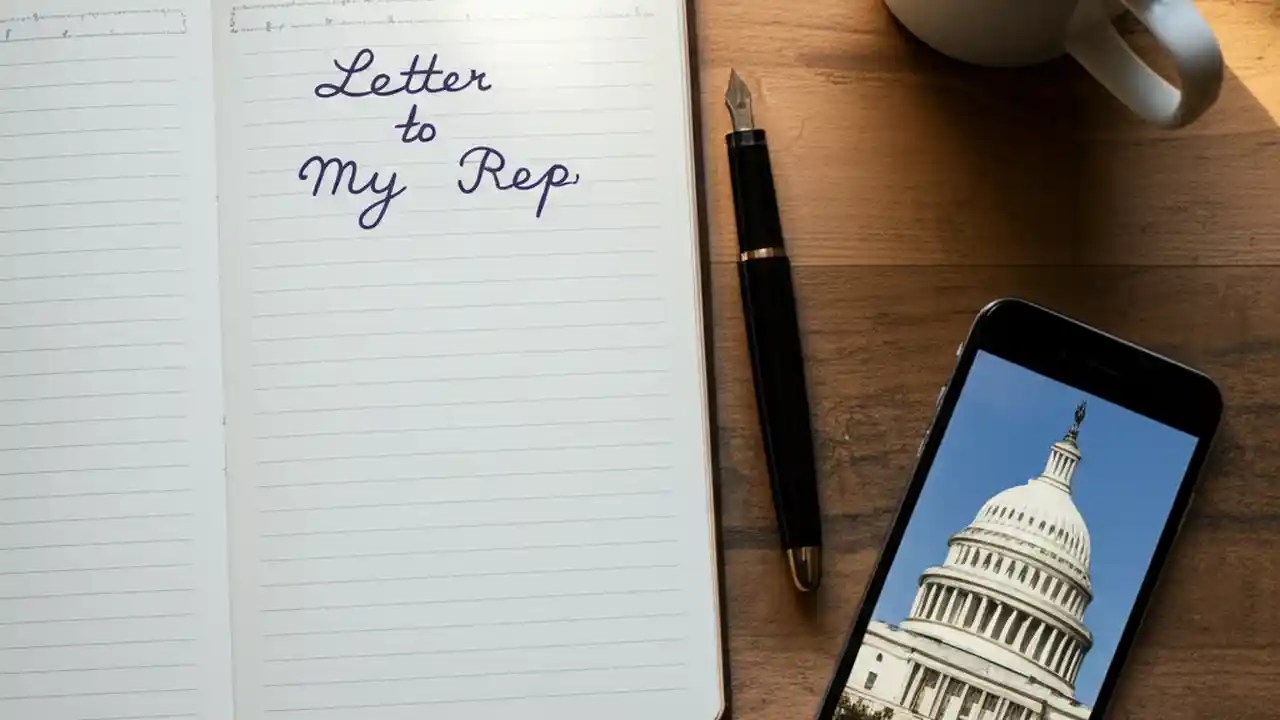 Letter
to
My Rep